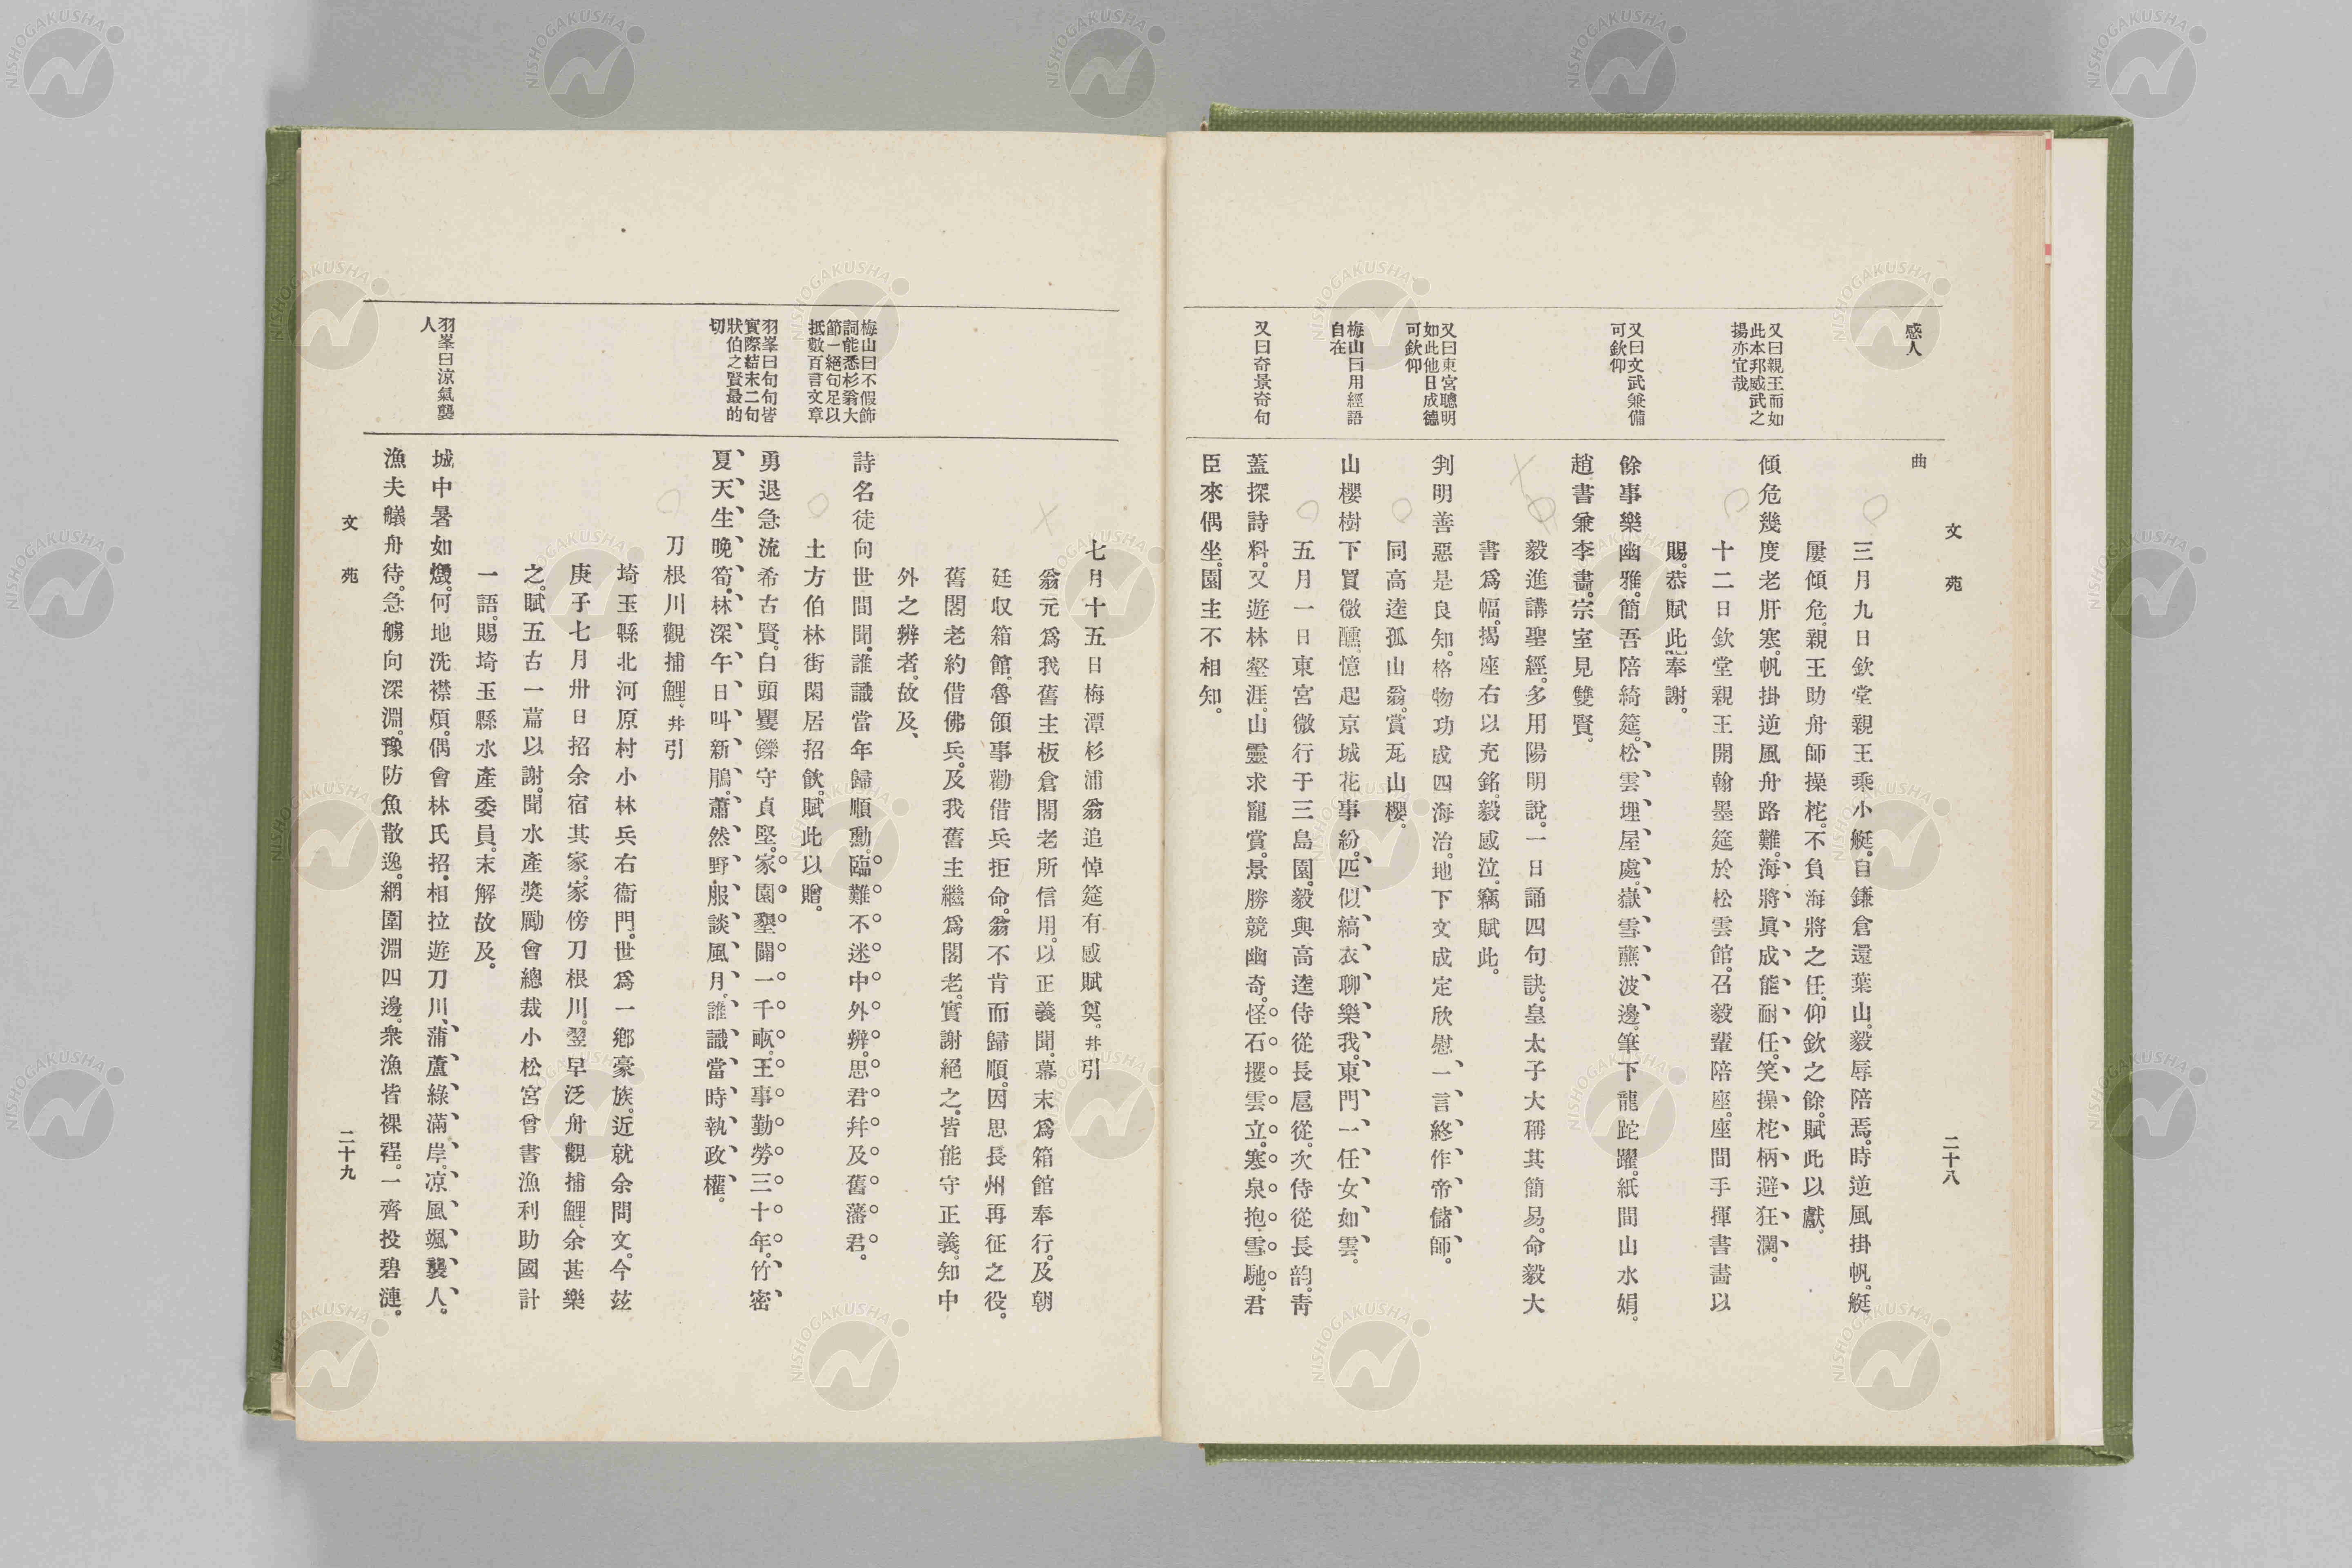 文苑
二十八
感人
曲
三月九日欽堂親王乘小艇。自鎌倉還葉山。毅辱陪焉。時逆風掛帆。艇
屢傾危。親王助舟師操柁。不負海將之任。仰欽之餘。賦此以獻。
又曰親王而如
此本邦威武之
揚亦宜哉
傾危幾度老肝寒。帆掛逆風舟路難。海將眞成能耐任。笑操柁柄避狂瀾。
十二日欽堂親王開翰墨筵於松雲館。召毅輩陪座。座間手揮書畵以
賜。恭賦此奉謝。
又曰文武兼備
可欽仰
餘事樂幽雅。簡吾陪綺筵。松雲埋屋處。嶽雪蘸波邊。筆下龍跎躍。紙間山水娟。
趙書兼李畵。宗室見雙賢。
毅進講聖經。多用陽明說。一日誦四句訣。皇太子大稱其簡易。命毅大
書爲幅。揭座右以充銘。毅感泣。竊賦此。
又曰東宮聰明
如此他日成德
可欽仰
判明善惡是良知。格物功成四海治。地下文成定欣慰。一言終作帝儲師。
同高逵孤山翁。賞瓦山櫻。
梅山曰用經語
自在
山櫻樹下買微醺。憶起京城花事紛。匹似縞衣聊樂我。東門一任女如雲。
五月一日東宮微行于三島園。毅與高逵侍從長扈從。次侍從長韵。靑
又曰奇景奇句
蓋探詩料。又遊林壑涯。山靈求寵賞。景勝競幽奇。怪石攫雲立。寒泉抱雪馳。君
臣來偶坐。園主不相知。
七月十五日梅潭杉浦翁追悼筵有感賦奠。幷引
翁元爲我舊主板倉閣老所信用。以正義聞。幕末爲箱館奉行。及朝
廷収箱館。魯領事勸借兵拒命。翁不肯而歸順。因思長州再征之役。
舊閣老約借佛兵。及我舊主繼爲閣老。實謝絕之。皆能守正義。知中
外之辨者。故及、
梅山曰不假飾
詞能悉杉翁大
節一絕句足以
抵數百言文章
詩名徒向世間聞。誰識當年歸順勳。臨難不迷中外辨。思君幷及舊藩君。
土方伯林街閑居招飮。賦此以贈。
羽峯曰句句皆
實際結末二句
狀伯之賢最的
切
勇退急流希古賢。白頭矍鑠守貞堅。家園墾闢一千畝。王事勤勞三十年。竹密
夏天生晚筍。林深午日叫新鵑。蕭然野服談風月。誰識當時執政權。
刀根川觀捕鯉。幷引
埼玉縣北河原村小林兵右衞門。世爲一鄕豪族。近就余問文。今玆
庚子七月卅日招余宿其家。家傍刀根川。翌早泛舟觀捕鯉。余甚樂
之。賦五古一篇以謝。聞水產奬勵會總裁小松宮曾書漁利助國計
一語。賜埼玉縣水產委員。末解故及。
羽峯曰涼氣襲
人
城中暑如燬。何地洗襟煩。偶會林氏招。相拉遊刀川。蒲蘆綠滿岸。凉風颯襲人。
漁夫艤舟待。急艣向深淵。豫防魚散逸。網圍淵四邊。衆漁皆裸裎。一齊投碧漣。
文苑
二十九